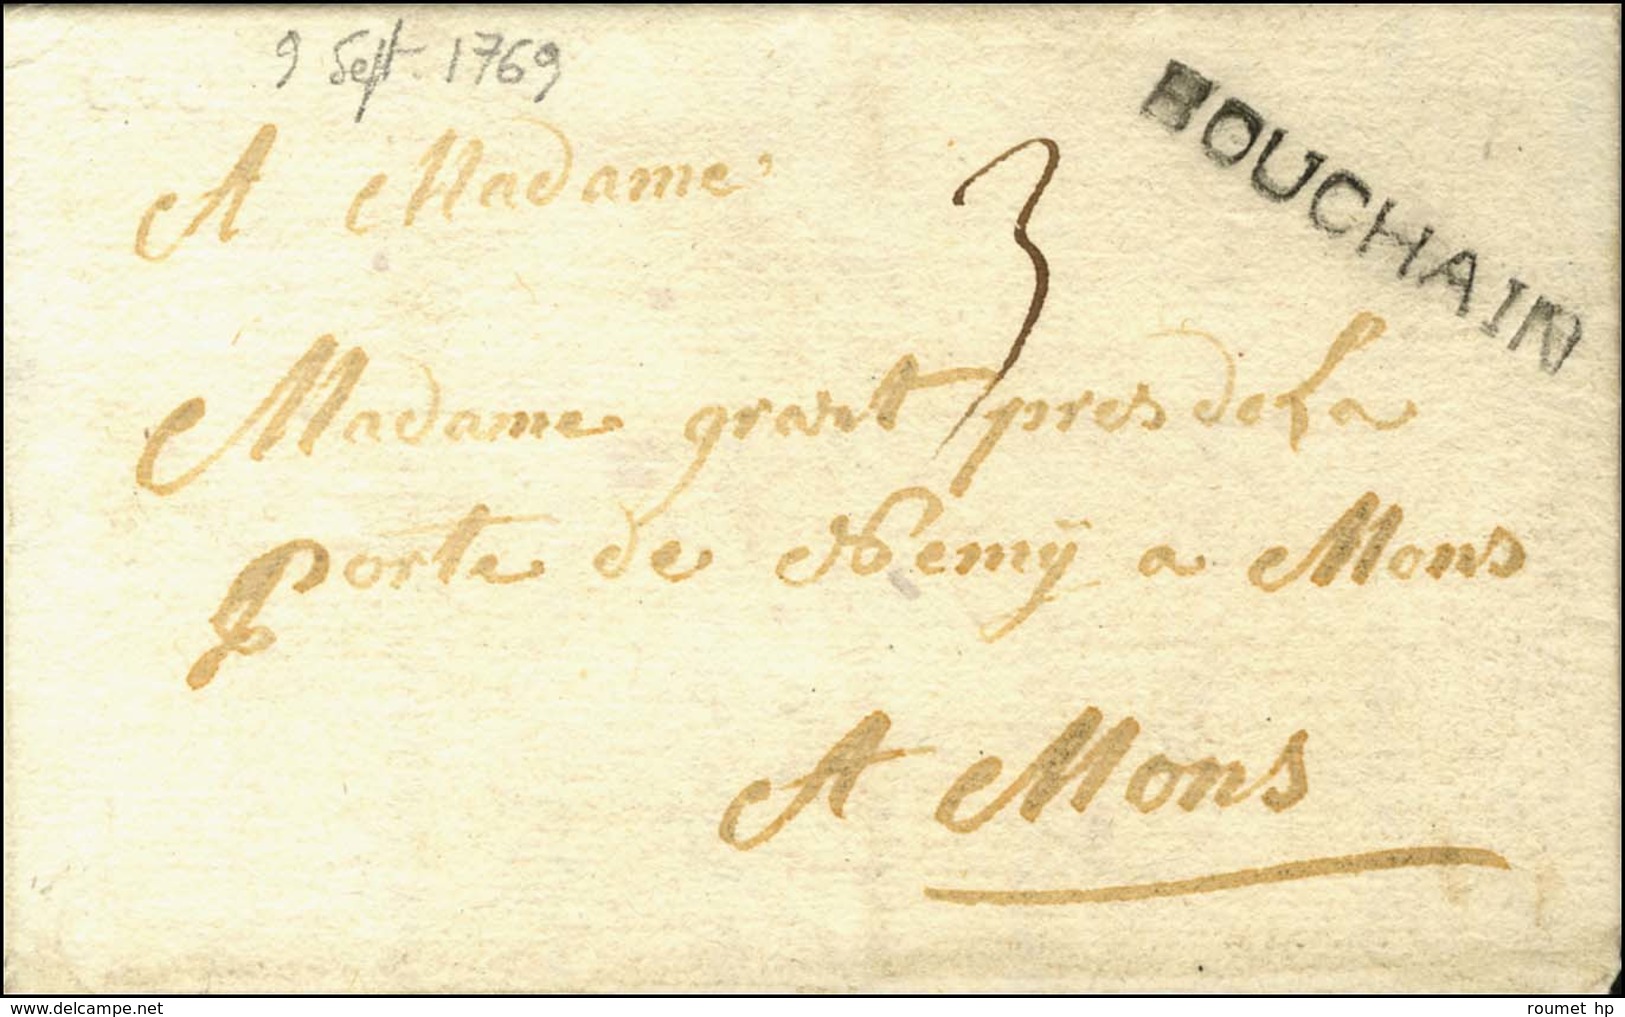 9 Sept. 1769
BOUCHAIN
A Madame
3
Madame grart pres de La
porte de Nemÿ a Mons
A Mons
www.delcampe.net
roumet hp